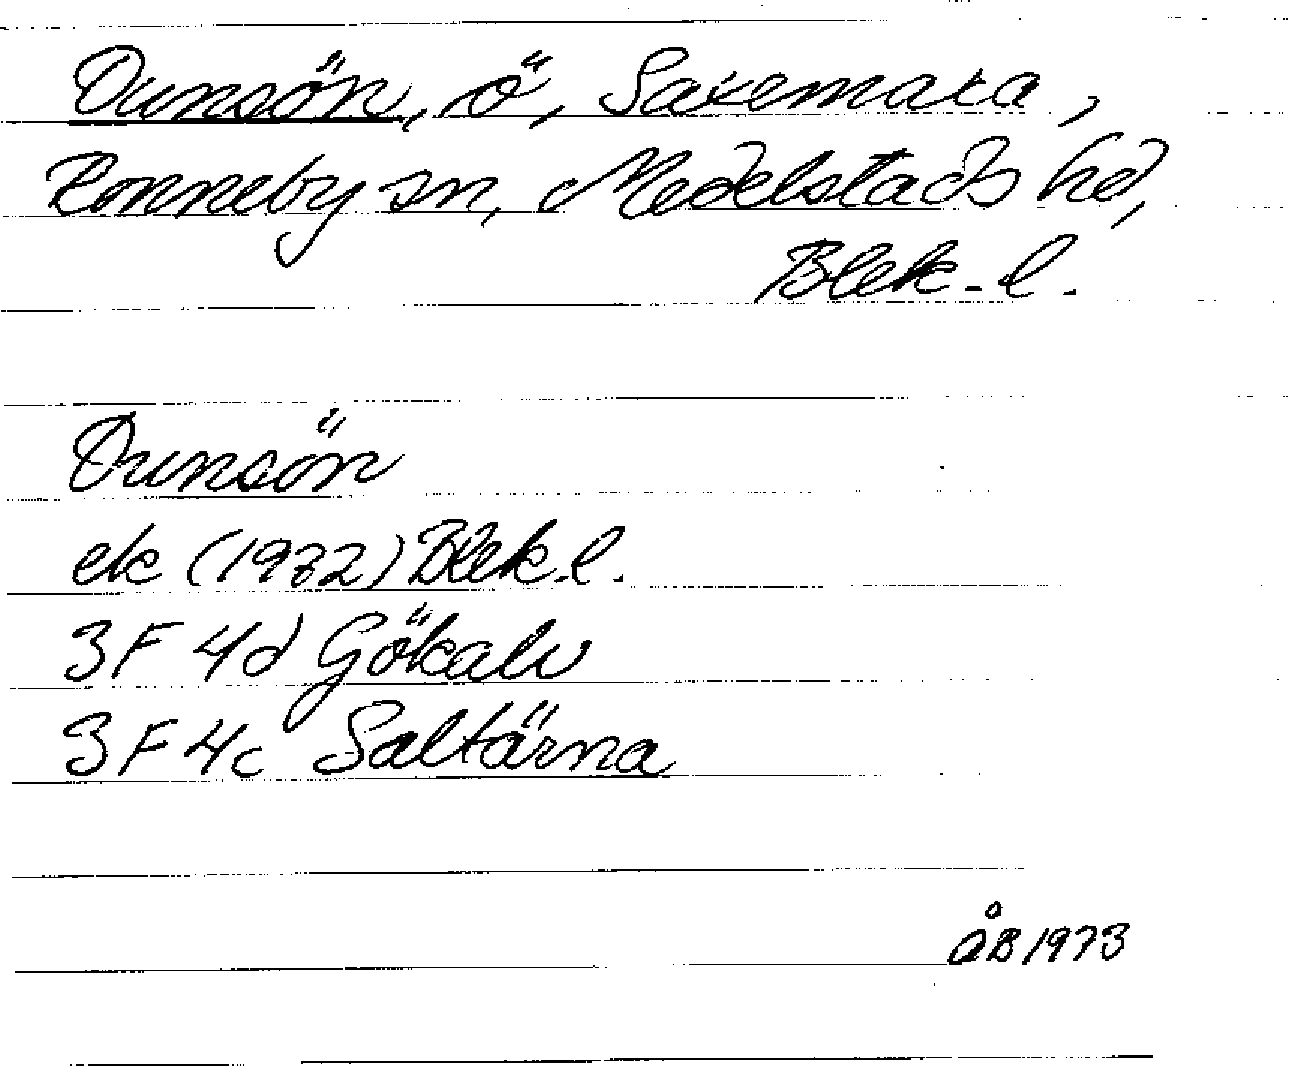 Dunsön, ö, Saxemara,
Ronneby sn, Medelstads hd,
Blek. l.
Dunsön
ek (1972) Blek. l.
3F 4d Gökalv
3F 4c Saltärna
ÅB 1973